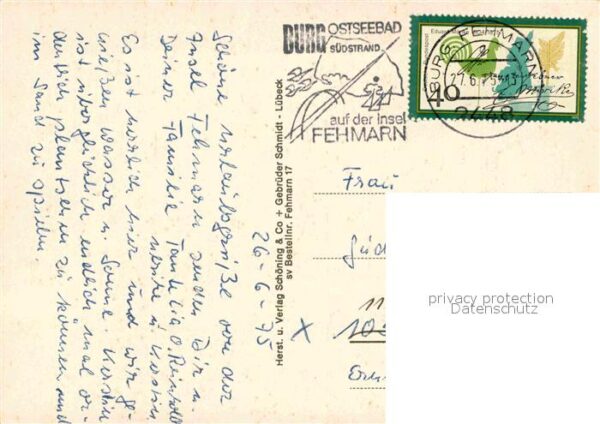 BURG OSTSEEBAD
SÜDSTRAND
auf der Insel
FEHMARN
BURG FEHMARN
27.6.75
2448
Eduard Mörike
40
Frau
10
26-6-75
Herst. u. Verlag Schöning & Co + Gebrüder Schmidt - Lübeck
sv Bestellnr. Fehmarn 17
Schöne Urlaubsgrüße von der
Insel Fehmarn senden Dir u.
Deiner Familie Tante Lia O. Reinhold
u. Karsten
Es ist herrlich hier und wir ge-
nießen Wasser u. Sonne. Karsten
ist überglücklich endlich mal or-
dentlich plantschen zu können und
im Sand zu spielen.
privacy protection
Datenschutz